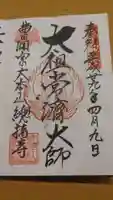 奉拝
廿九年四月九日
太祖常済大師
曹洞宗大本山總持寺